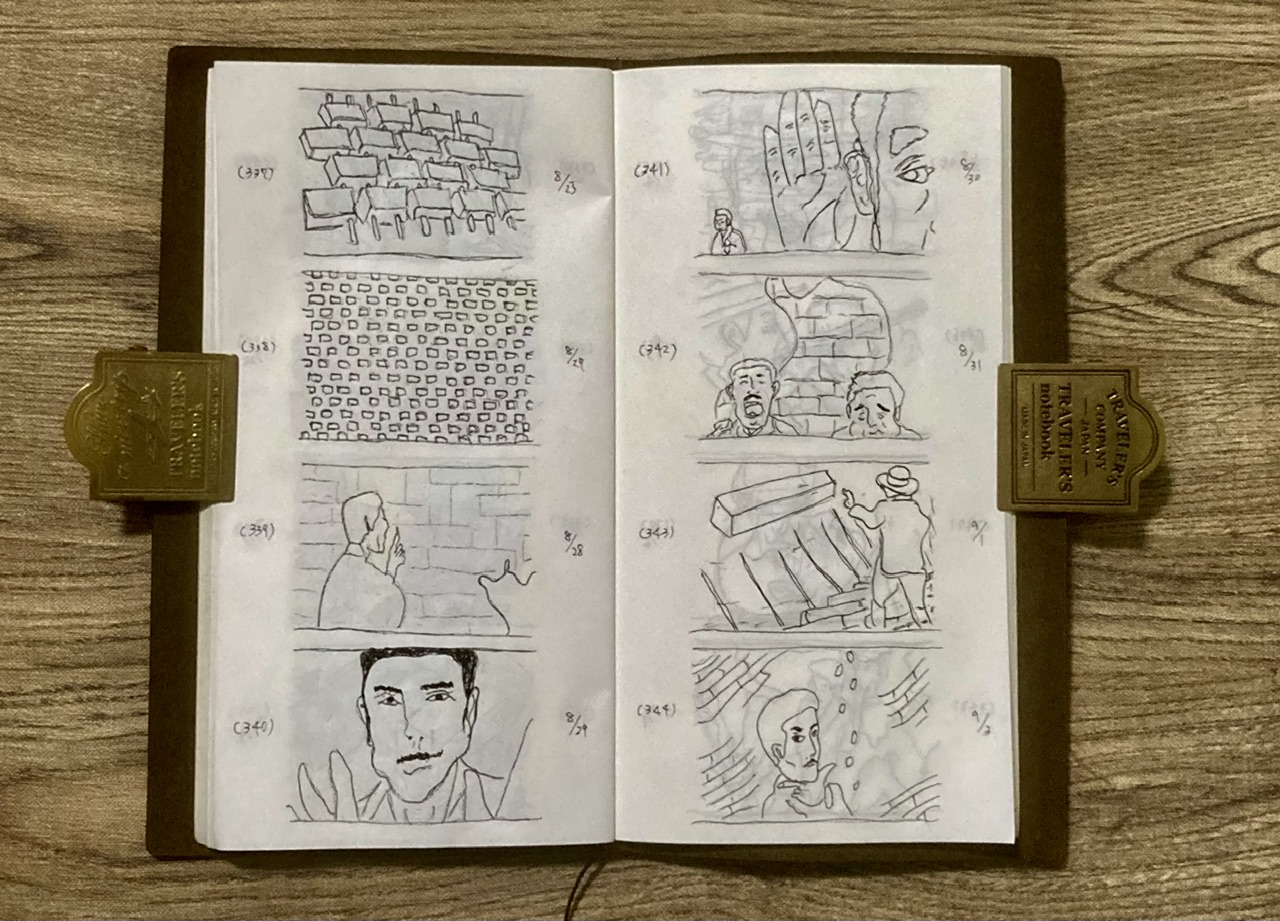 (337)
8/23
(338)
8/29
(339)
8/28
(340)
8/29
(341)
8/30
(342)
8/31
(343)
9/1
(344)
9/2
TRAVELER'S
COMPANY
JAPAN
TRAVELER'S
notebook
MADE IN JAPAN
TRAVELER'S
notebook